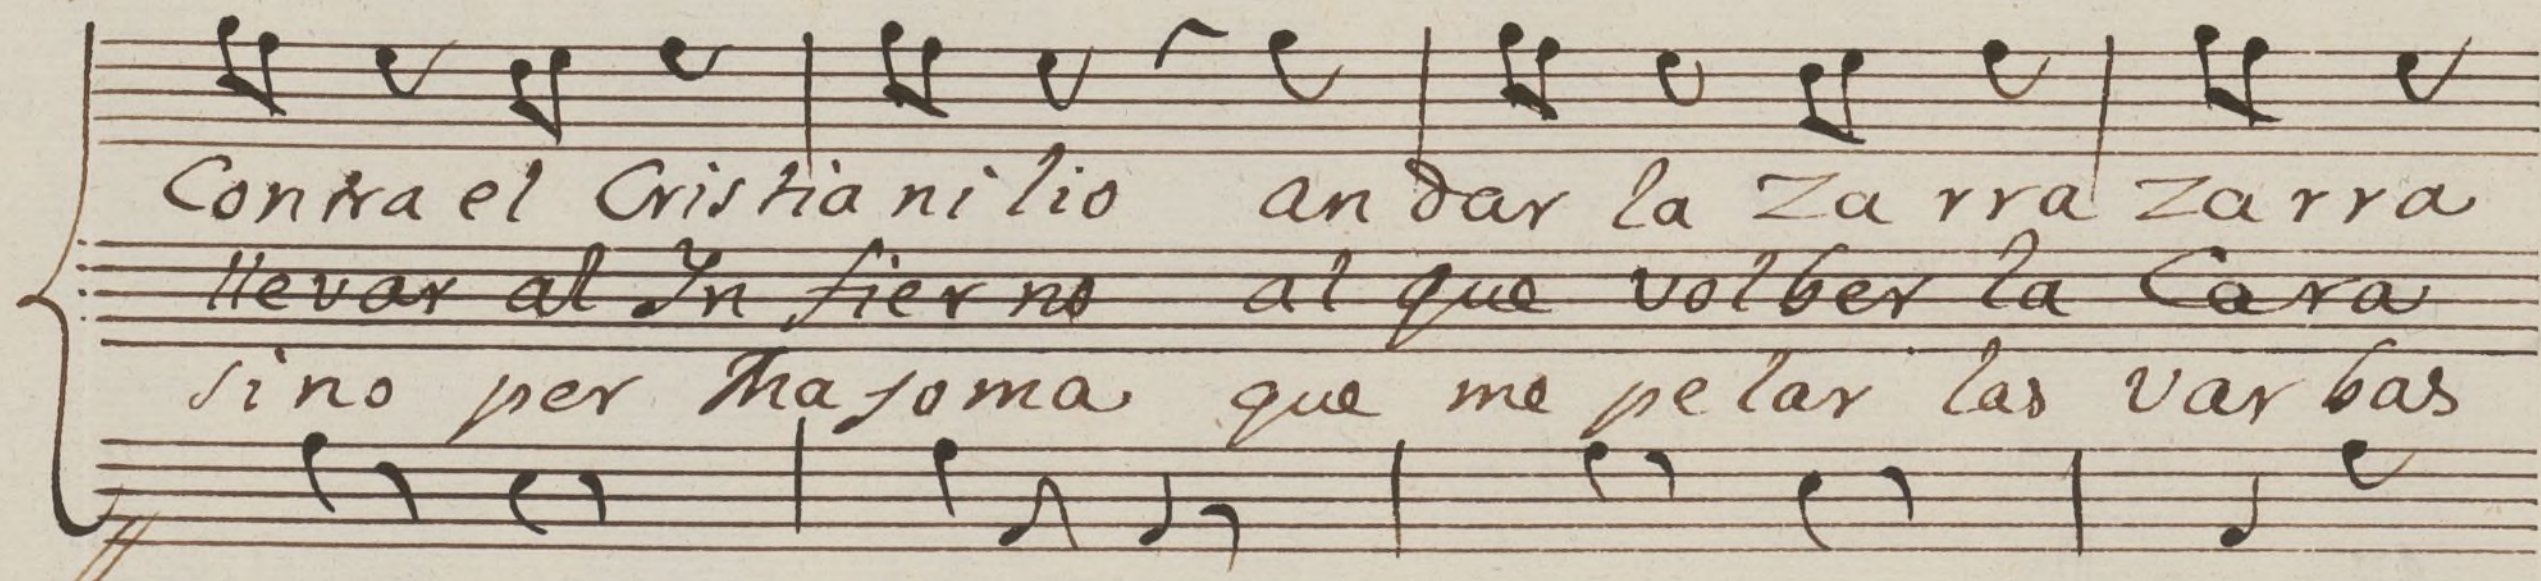 Contra el Cristia ni lio an dar la Za rra Za rra
llevar al In fier no al que volber la Cara
sino per Majoma que me pelar las var bas